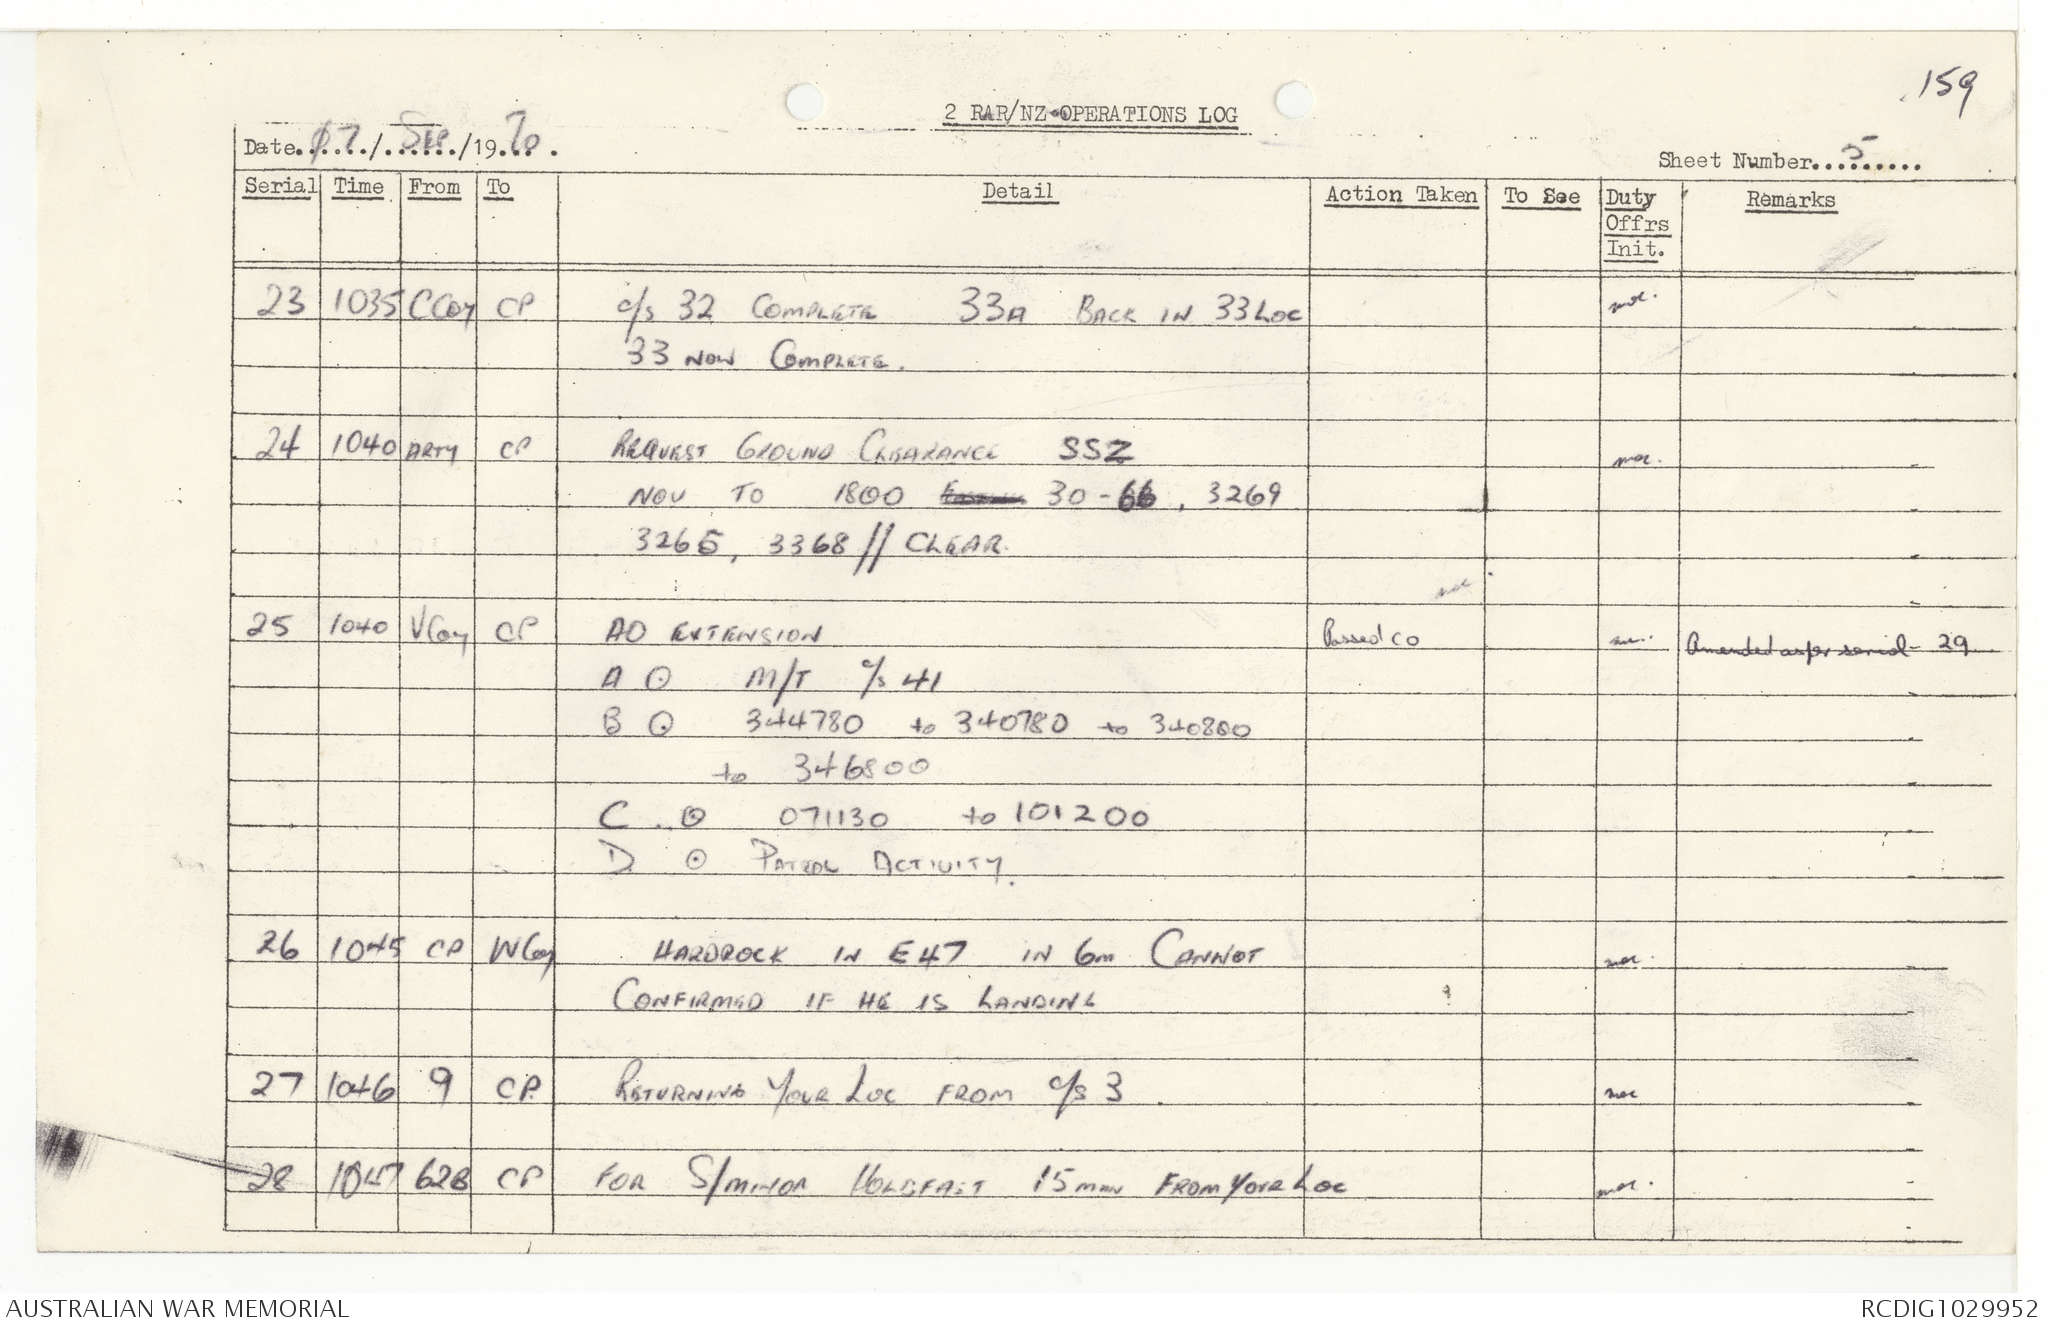 159
2 RAR/NZ OPERATIONS LOG
Date 07/Sep/1970.
Sheet Number 5
Serial Time From To Detail Action Taken To See Duty Offrs Init. Remarks
23 1035 CCoy CP c/s 32 COMPLETE 33A BACK IN 33 LOC
33 NOW COMPLETE.
24 1040 ARTY CP REQUEST GROUND CLEARANCE SSZ
NOW TO 1800 30-66, 3269
3265, 3368 // CLEAR.
25 1040 VCoy CP AO EXTENSION Passed CO Amended as per serial - 29
A ⊙ M/T c/s 41
B ⊙ 344780 to 340780 to 340800
to 346800
C ⊙ 071130 to 101200
D ⊙ PATROL ACTIVITY.
26 1045 CP WCoy HARDROCK IN E47 IN 6m CANNOT
CONFIRMED IF HE IS LANDING
27 1046 9 CP RETURNING YOUR LOC FROM c/s 3.
28 1047 62B CP FOR S/MINOR HOLDFAST 15 min FROM YOUR LOC
AUSTRALIAN WAR MEMORIAL
RCDIG1029952